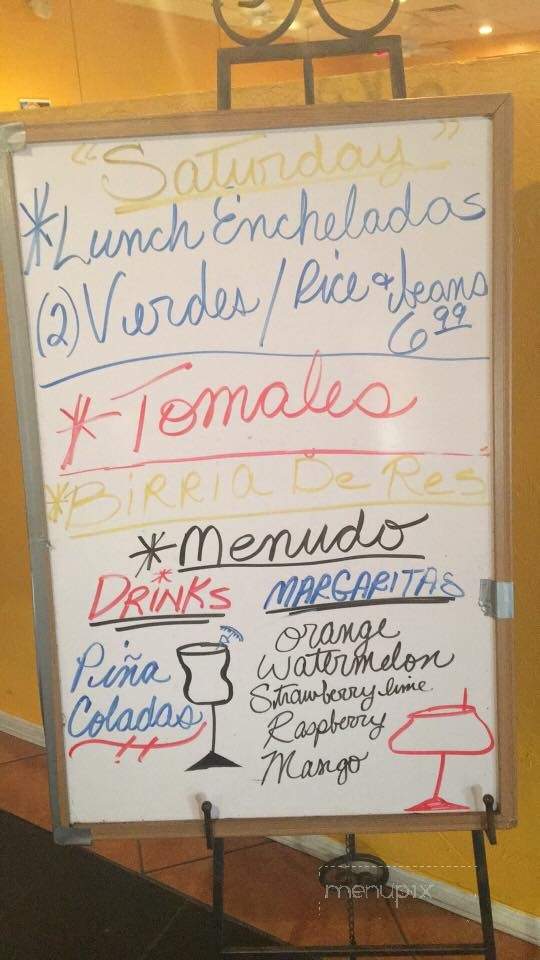 "Saturday"
*Lunch Encheladas
(2) Verdes / Rice & beans
6.99
*Tomales
*BIRRIA De Res
*Menudo
DRINKS
MARGARITAS
Piña
Coladas
!!
orange
watermelon
Strawberry lime
Raspberry
Mango
menupix